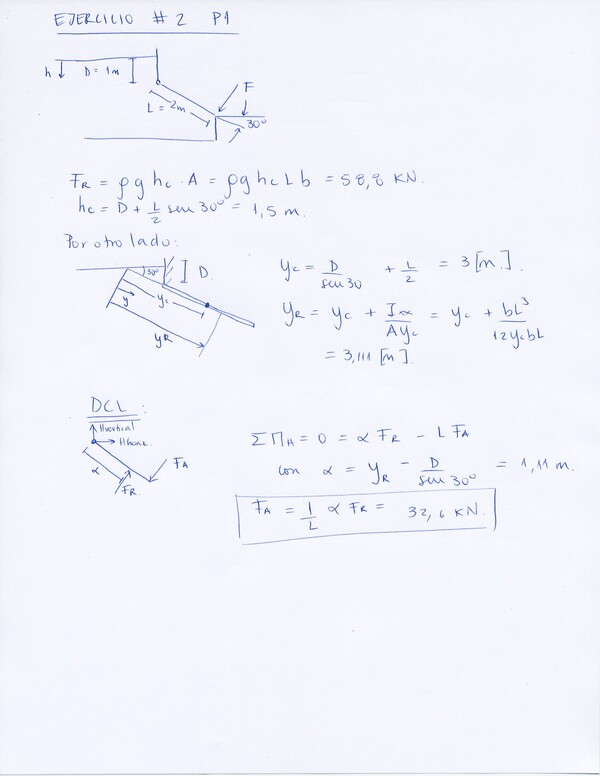 EJERCICIO # 2 P1
h D = 1m F
L = 2m 30°
F_R = ρ g h_c · A = ρ g h_c L b = 58,8 KN.
h_c = D + L/2 sen 30° = 1,5 m.
Por otro lado:
30° D
y y_c
y_R
y_c = D/sen 30 + L/2 = 3 [m].
y_R = y_c + I_x/(A y_c) = y_c + bL³/(12 y_c bL)
= 3,111 [m]
DCL:
Hvertical
Hhoriz.
α F_R F_A
Σ M_H = 0 = α F_R - L F_A
con α = y_R - D/sen 30° = 1,11 m.
F_A = 1/L α F_R = 32,6 KN.